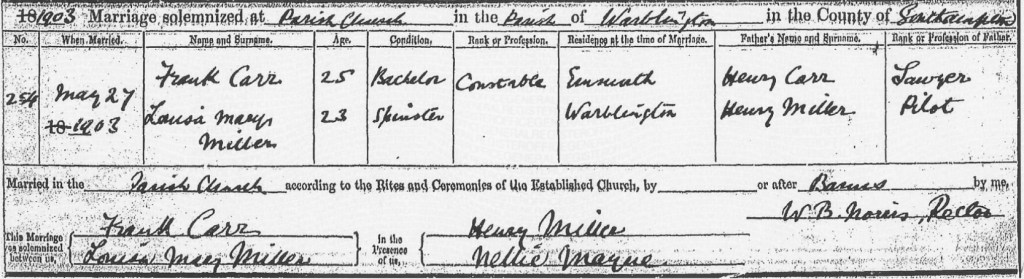 18 1903 Marriage solemnized at Parish Church in the Parish of Warblington in the County of Southampton
No. When Married. Name and Surname. Age. Condition. Rank or Profession. Residence at the time of Marriage. Father's Name and Surname. Rank or Profession of Father.
254 May 27 18 1903 Frank Carr 25 Bachelor Constable Emsworth Henry Carr Sawyer
Louisa Mary Miller 23 Spinster Warblington Henry Miller Pilot
Married in the Parish Church according to the Rites and Ceremonies of the Established Church, by or after Banns by me,
W. B. Norris, Rector
This Marriage was solemnized between us, Frank Carr In the Presence of us, Henry Miller
Louisa Mary Miller Nellie Mayne